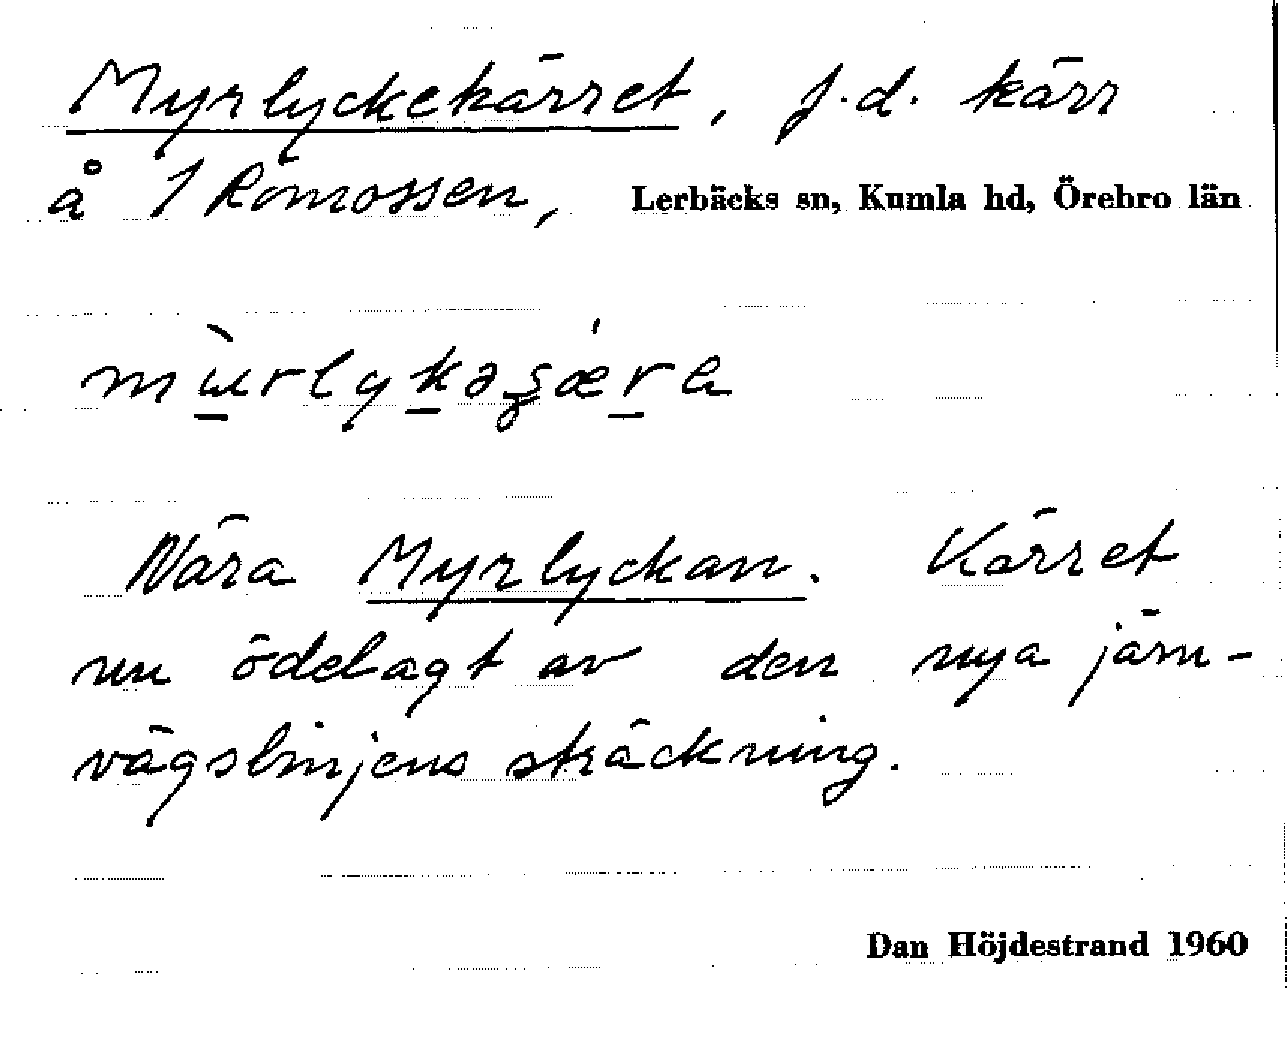 Myrlyckekärret, f.d. kärr
å 1 Römossen, Lerbäcks sn, Kumla hd, Örebro län
Nära Myrlyckan. Kärret
nu ödelagt av den nya järn-
vägslinjens sträckning.
Dan Höjdestrand 1960